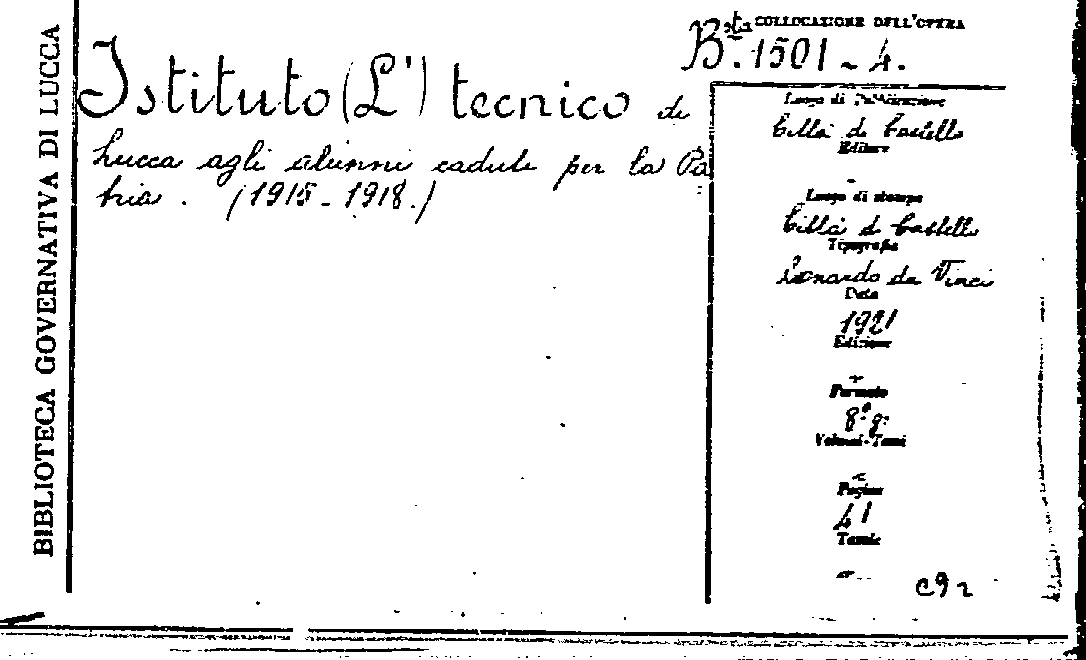 BIBLIOTECA GOVERNATIVA DI LUCCA
COLLOCAZIONE DELL'OPERA
B.sta 1501 - 4.
Istituto (L') tecnico di
Lucca agli alunni caduti per la Pa
tria. (1915-1918.)
Luogo di Pubblicazione
Città di Castello
Editore
-
Luogo di stampa
Città di Castello
Tipografia
Leonardo da Vinci
Data
1921
Edizione
-
Formato
8° g.
Volumi-Tomi
-
Pagine
41
Tavole
-